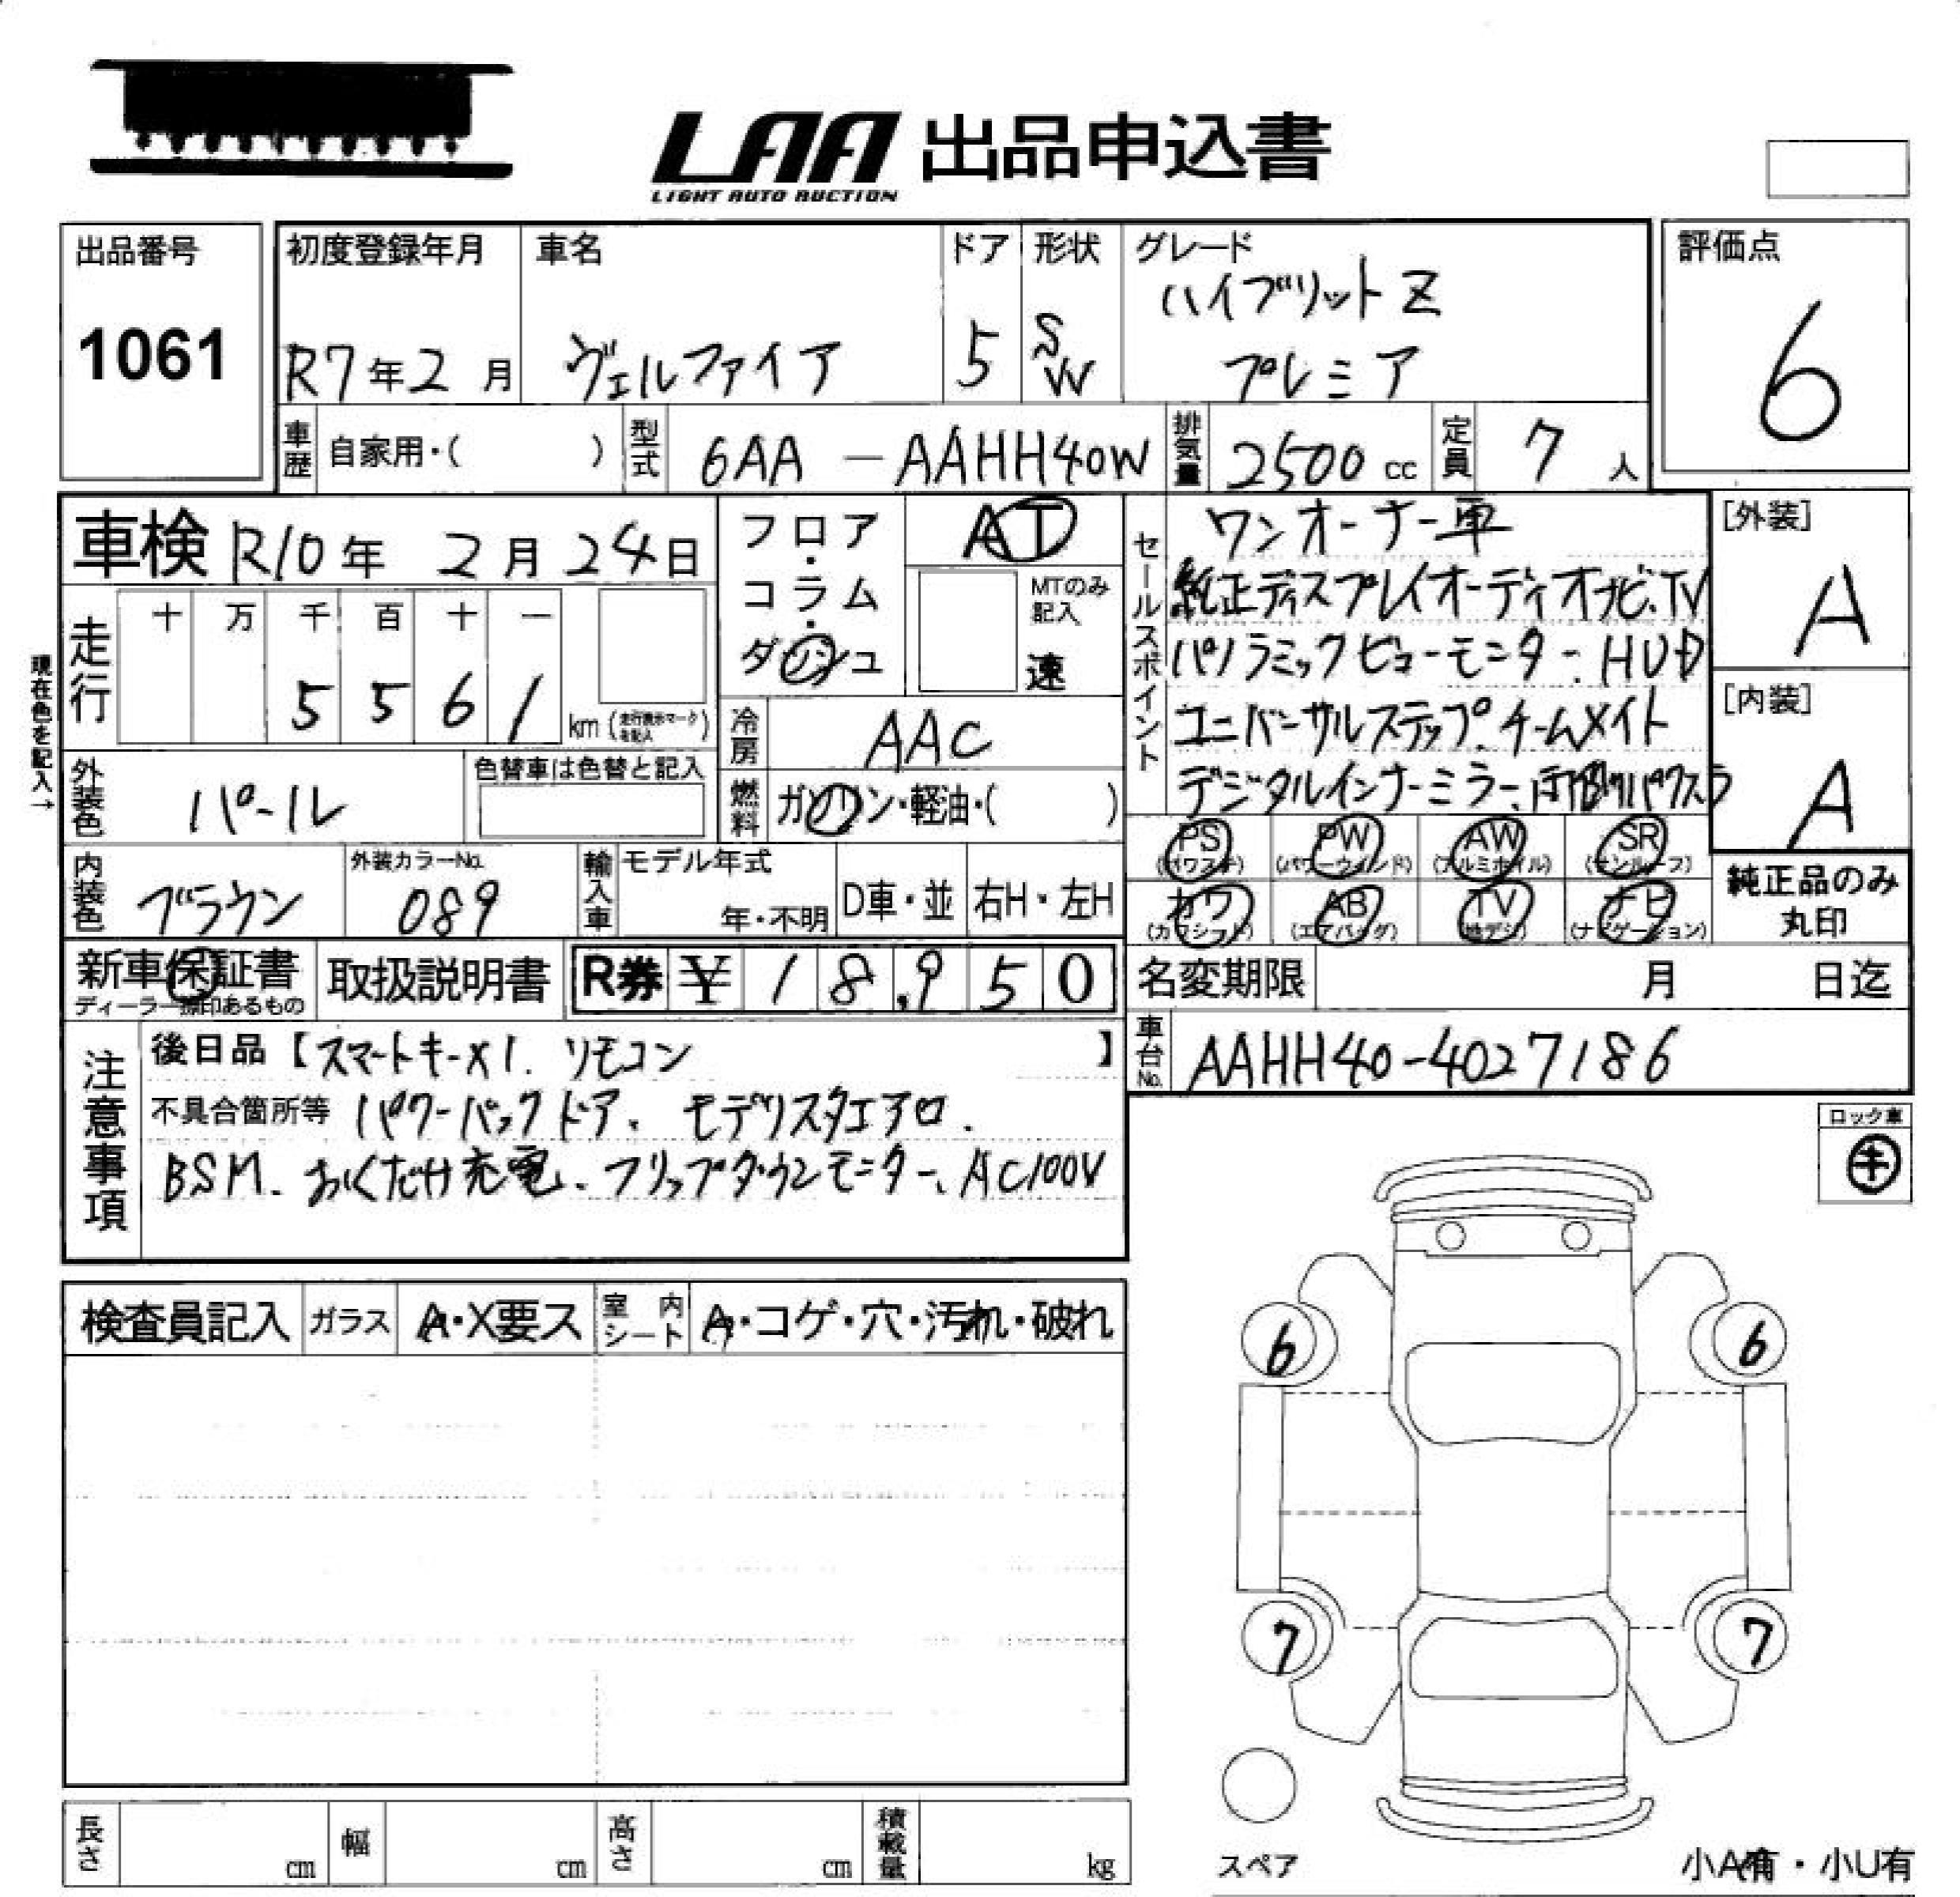 LAA 出品申込書
LIGHT AUTO AUCTION
出品番号
1061
初度登録年月
R7年2月
車名
ヴェルファイア
ドア
5
形状
SW
グレード
ハイブリットZ
プレミア
評価点
6
車歴 自家用・( )
型式 6AA - AAHH40W
排気量 2500cc
定員 7人
車検 R10年 2月24日
フロア・コラム・ダッシュ
AT
MTのみ記入
速
セールスポイント
ワンオーナー車
純正ディスプレイオーディオナビ、TV
パノラミックビューモニター、HUD
ユニバーサルステップ、チームメイト
デジタルインナーミラー、
[外装]
A
[内装]
A
現在色を記入→
走行
十 万 千 百 十 一
5 5 6 1 km (走行表示マークを記入)
冷房 AAC
外装色 パール
色替車は色替と記入
燃料 ガソリン・軽油・( )
内装色 ブラウン
外装カラーNo. 089
輸入車 モデル年式
年・不明
D車・並 右H・左H
PS (パワステ) PW (パワーウインド) AW (アルミホイル) SR (サンルーフ)
カワ (カワシート) AB (エアバッグ) TV (地デジ) ナビ (ナビゲーション)
純正品のみ
丸印
新車保証書
ディーラー捺印あるもの
取扱説明書
R券 ¥ 18,950
名変期限 月 日迄
車台No. AAHH40-4027186
注意事項
後日品【スマートキーX1. リモコン 】
不具合箇所等 パワーバックドア、モデリスタエアロ、
BSM、おくだけ充電、フリップダウンモニター、AC100V
ロック車
キ
検査員記入 ガラス A・X要ス 室内シート A・コゲ・穴・汚れ・破れ
6 6
7 7
スペア
長さ cm 幅 cm 高さ cm 積載量 kg
小A有・小U有